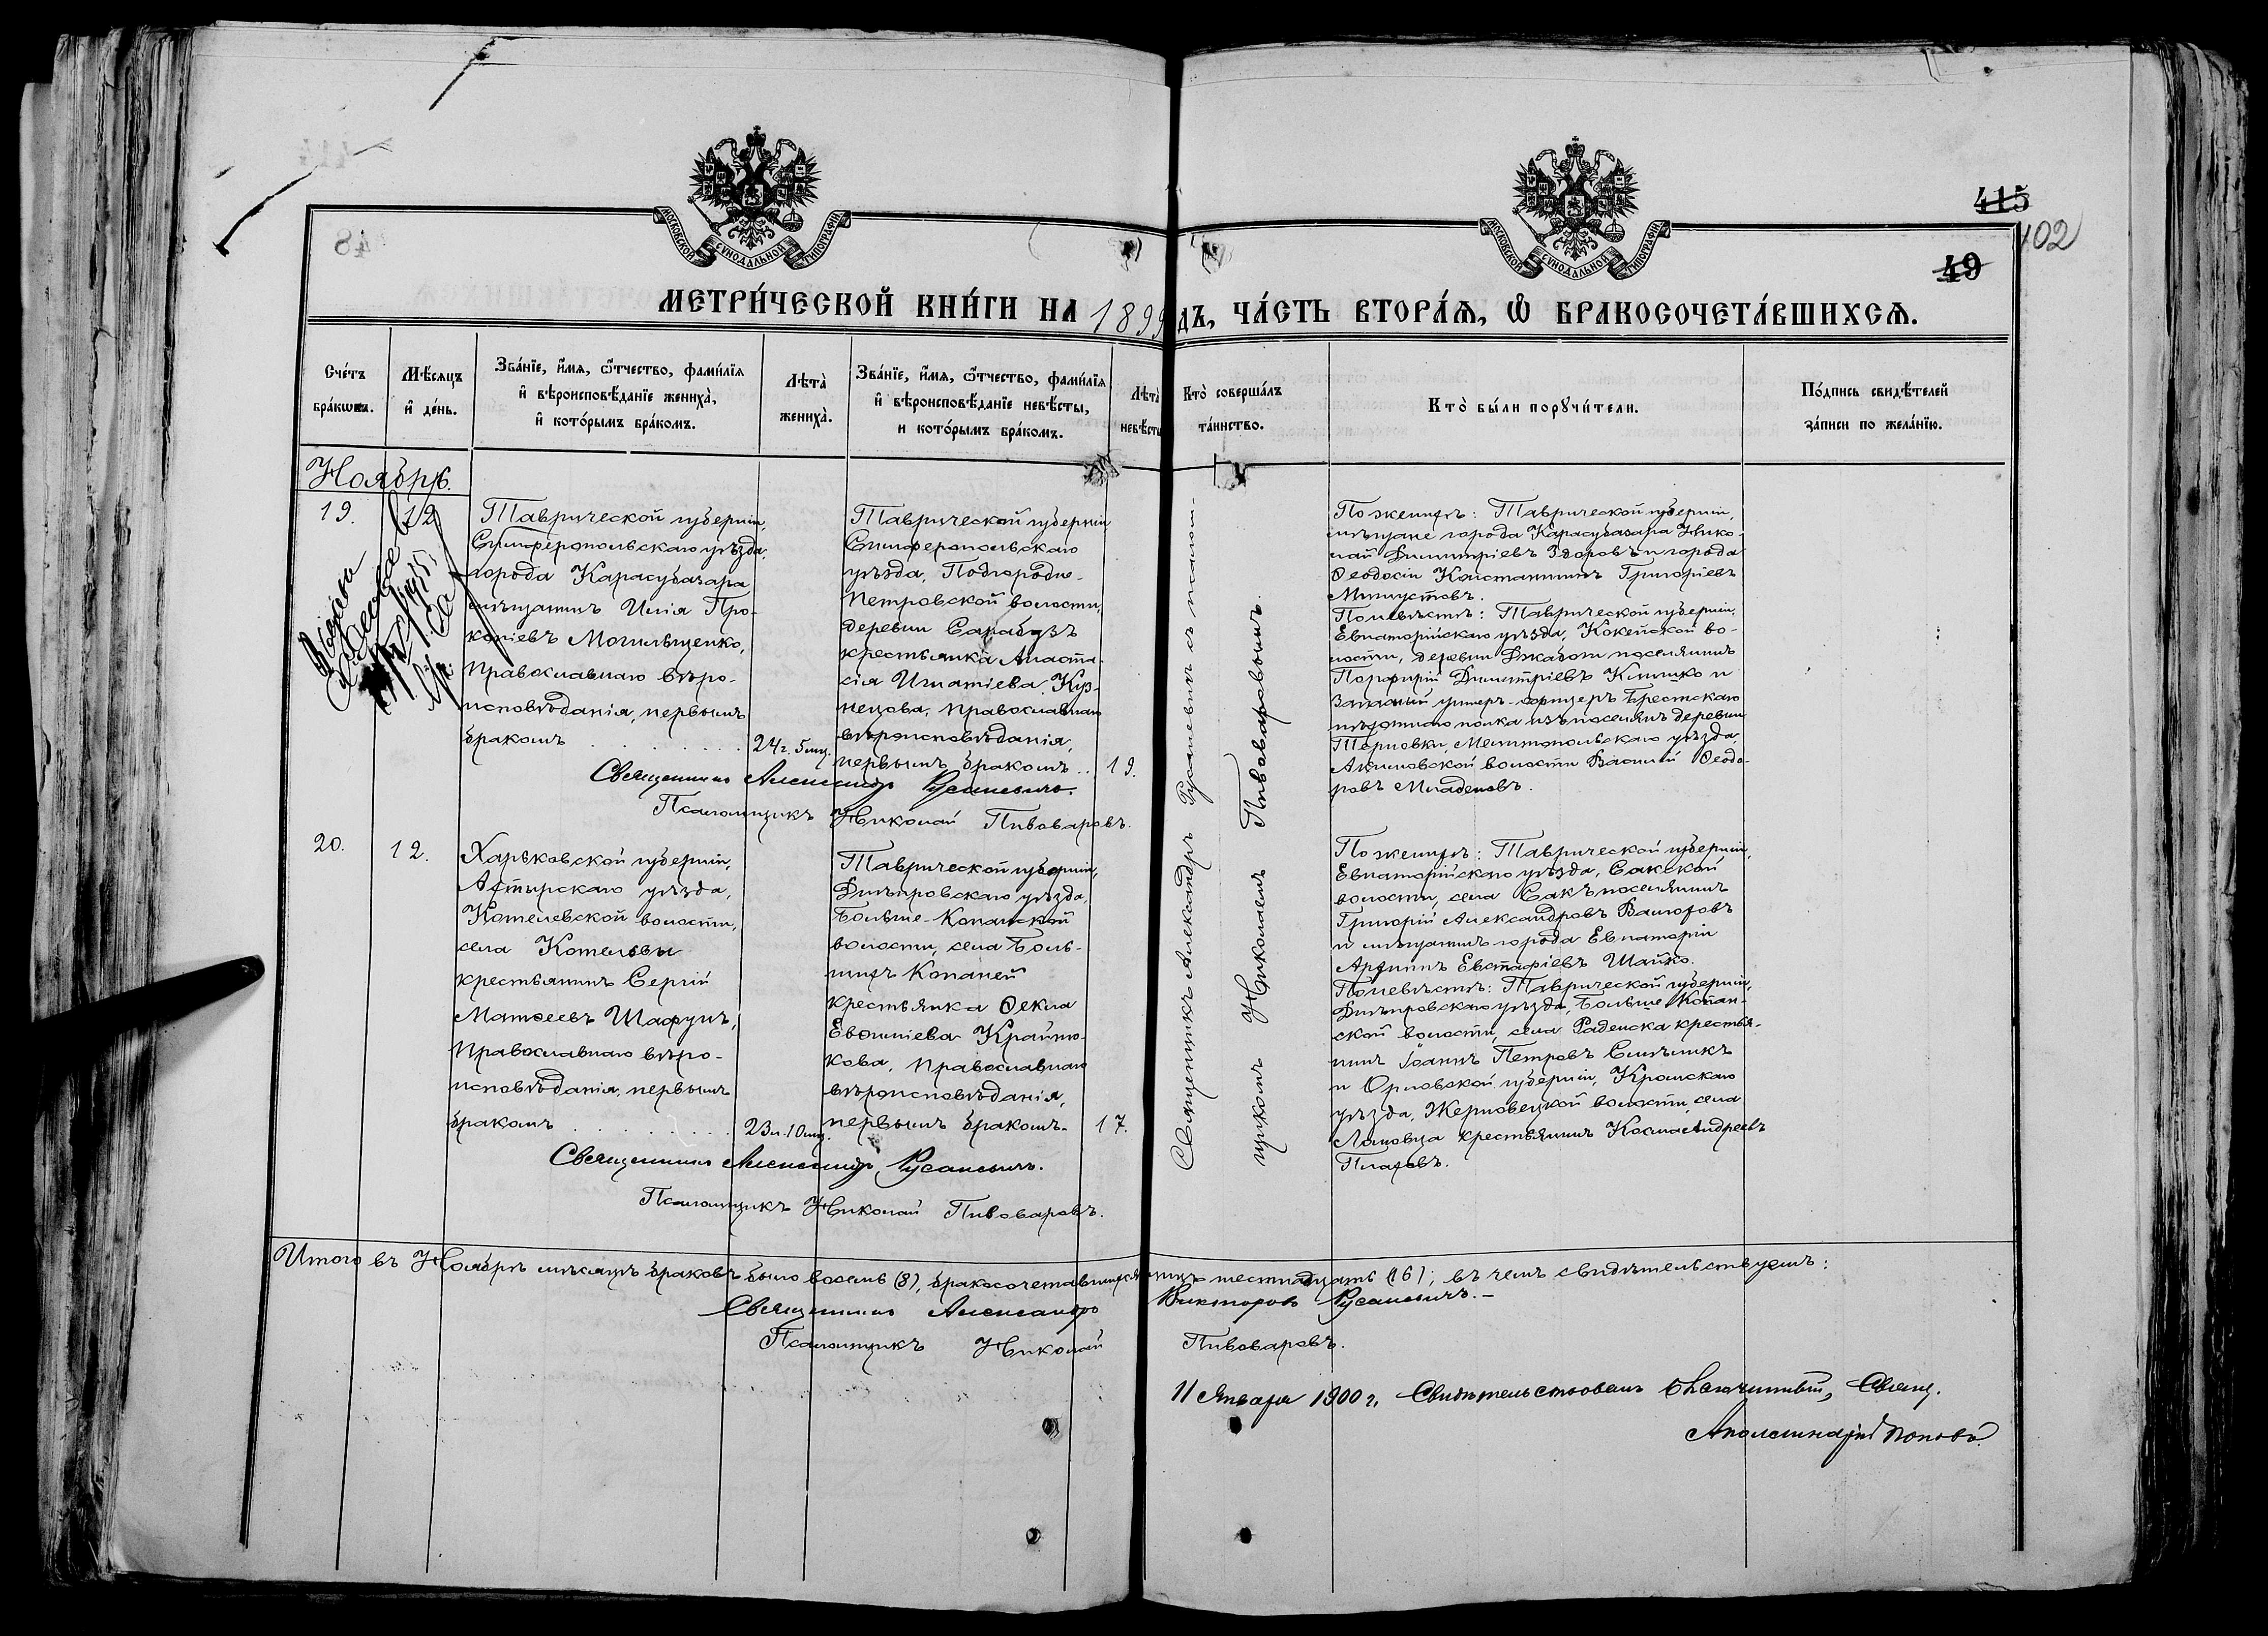 415
102
49
МОСКОВСКОЙ СУНОДАЛЬНОЙ ТИПОГРАФІИ
МОСКОВСКОЙ СУНОДАЛЬНОЙ ТИПОГРАФІИ
МЕТРИ́ЧЕСКОЙ КНИ́ГИ НА 1899 ДЪ, ЧА́СТЬ ВТОРА́Ѧ, Ѡ҆ БРАКОСОЧЕТА́ВШИХСѦ.
Сче́тъ
бра́кѡвъ.
Мѣ́сѧцъ
и҆ де́нь.
Зва́нїе, и҆́мѧ, ѻ҆́тчество, фами́лїѧ
и҆ вѣроисповѣ́данїе жениха̀,
и҆ кото́рымъ бра́комъ.
Лѣта̀
жениха̀.
Зва́нїе, и҆́мѧ, ѻ҆́тчество, фами́лїѧ
и҆ вѣроисповѣ́данїе невѣ́сты,
и кото́рымъ бра́комъ.
Лѣта̀
невѣ́сты
Кто̀ соверша́лъ
та́инство.
Кто̀ бы́ли порꙋчи́тели.
По́дпись свидѣ́телей
за́писи по жела́нїю.
Ноябрь.
19.
12
Таврической губерніи,
Симферопольскаго уѣзда,
города Карасубазара
мѣщанинъ Илія Про-
копіевъ Могильщенко,
православнаго вѣро-
исповѣданія, первымъ
бракомъ
24 г. 5 мц.
Таврической губерніи
Симферопольскаго
уѣзда, Подгородне-
Петровской волости,
деревни Сарабузъ
крестьянка Анаста-
сія Игнатіева Куз-
нецова, православнаго
вѣроисповѣданія,
первымъ бракомъ..
19.
Священникъ Александръ Русаневичъ.
Псаломщикъ Николай Пивоваровъ.
Священникъ Александръ Русаневичъ съ псалом-
щикомъ Николаемъ Пивоваровымъ.
По женихѣ: Таврической губерніи,
мѣщане города Карасубазара Нико-
лай Димитріевъ Здоровъ и города
Ѳеодосіи Константинъ Григоріевъ
По невѣстѣ: Таврической губерніи,
Евпаторійскаго уѣзда, Кокейской во-
лости, деревни поселянинъ
Порфирій Димитріевъ Климко и
Запасный унтеръ-офицеръ Брестскаго
пѣхотнаго полка изъ поселянъ деревни
Терновки, Мелитопольскаго уѣзда,
Акимовской волости Василій Ѳеодо-
ровъ Младеновъ.
20.
12.
Харьковской губерніи,
Ахтырскаго уѣзда,
Котелевской волости,
села Котельвы
крестьянинъ Сергій
Матѳеевъ Шафунъ,
православнаго вѣро-
исповѣданія, первымъ
бракомъ
23 л. 10 мц.
Таврической губерніи,
Днѣпровскаго уѣзда,
Больше-Копанской
волости, села Боль-
шихъ Копаней
крестьянка Ѳекла
Евѳиміева Крайню-
кова, православнаго
вѣроисповѣданія,
первымъ бракомъ.
17.
Священникъ Александръ Русаневичъ.
Псаломщикъ Николай Пивоваровъ.
По женихѣ: Таврической губерніи,
Евпаторійскаго уѣзда, Сакской
волости, села Сакъ поселянинъ
Григорій Александровъ
и мѣщанинъ города Евпаторіи
Евстафіевъ Шайко.
По невѣстѣ: Таврической губерніи,
Днѣпровскаго уѣзда, Больше Копан-
ской волости, села Раденска крестья-
нинъ Іоаннъ Петровъ
и Орловской губерніи, Кромскаго
уѣзда, Жерновецкой волости, села
Ломовца крестьянинъ Косма Андреевъ
Итого въ Ноябрѣ мѣсяцѣ браковъ было восемь (8), бракосочетавшихся лицъ шестнадцать (16); въ чемъ свидѣтельствуемъ:
Священникъ Александръ Викторовъ Русаневичъ.
Псаломщикъ Николай Пивоваровъ.
11 Января 1900 г. Свидѣтельствовалъ Благочинный, Свящ.
Аполлинарій Поповъ.